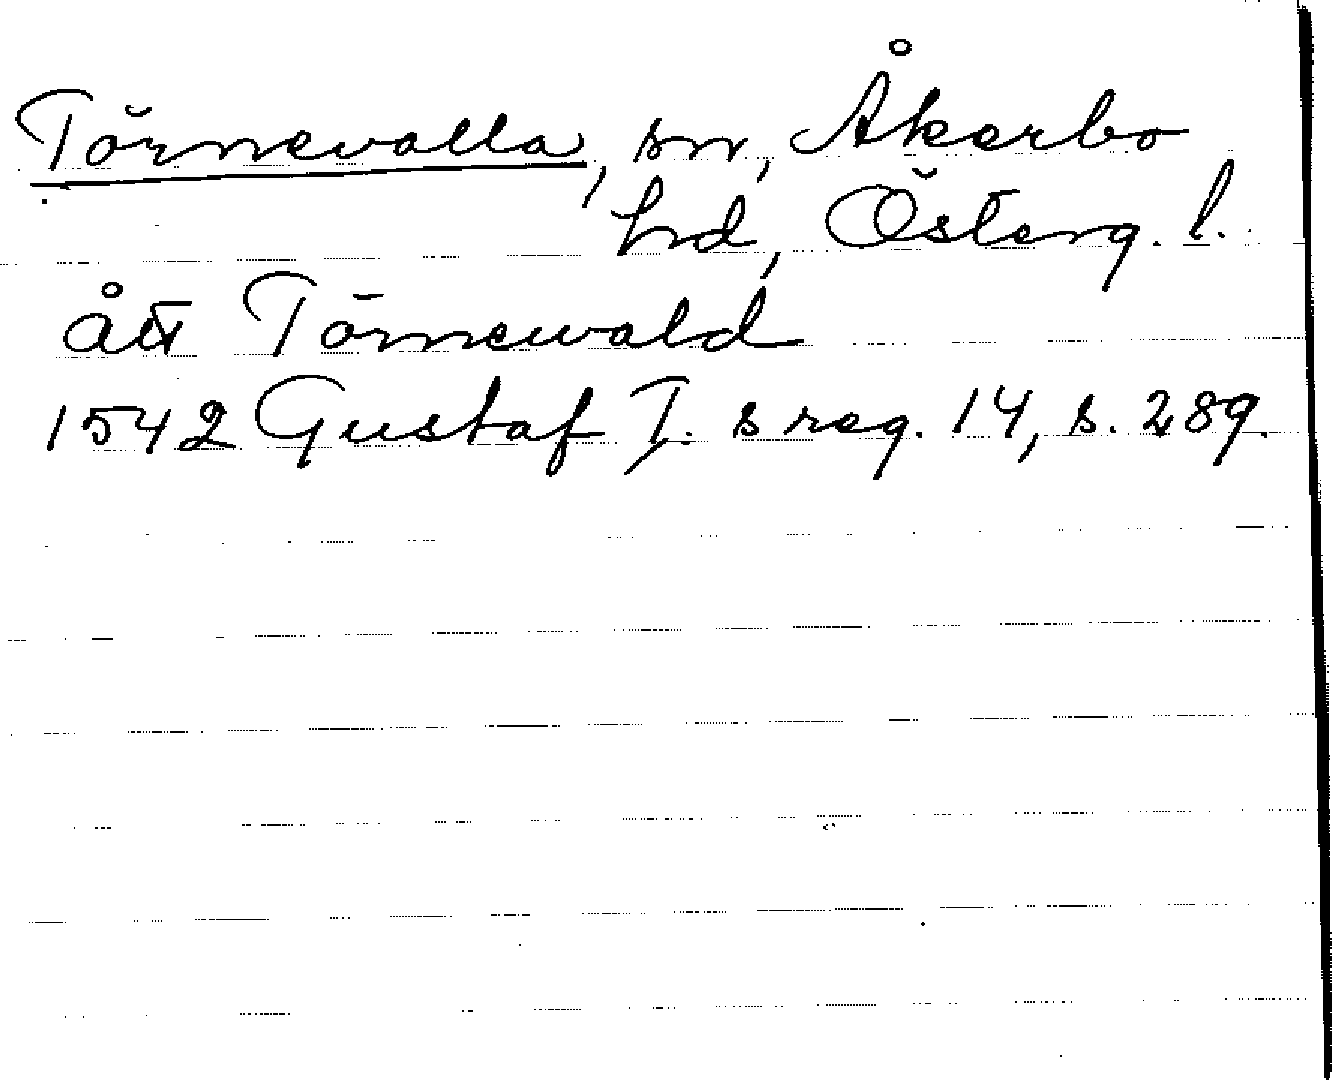 Törnevalla, sn, Åkerbo
hd, Österg. l.
ått Törnewald
1542 Gustaf I. s reg. 14, s. 289.